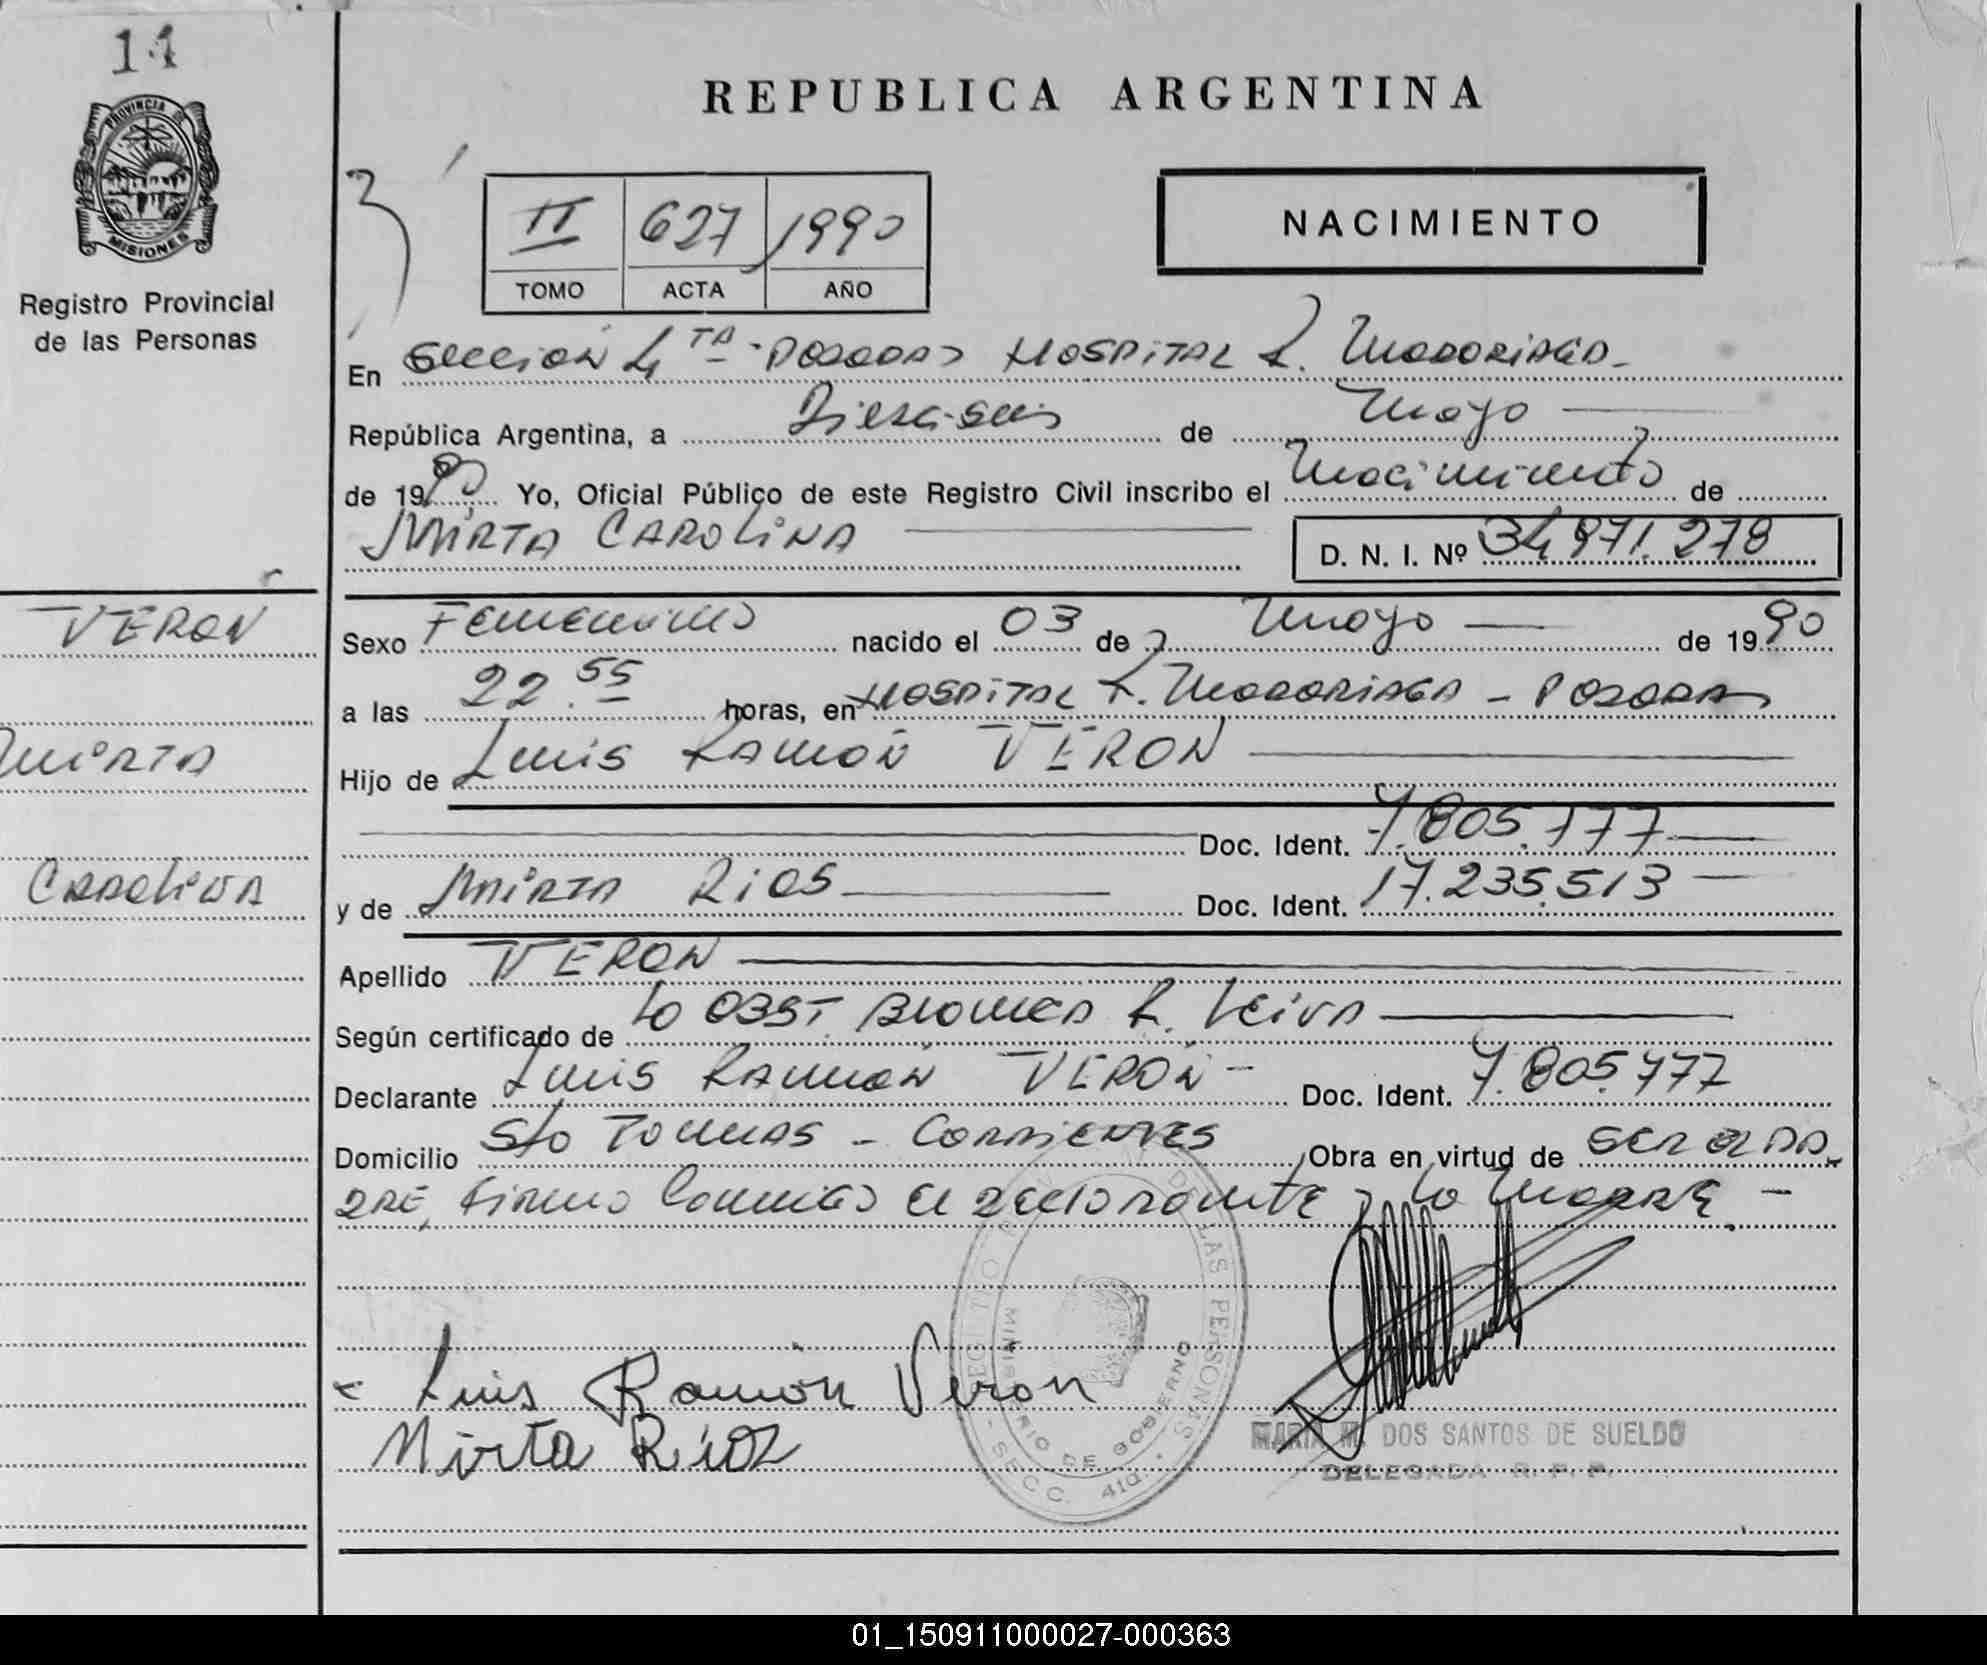 14
REPUBLICA ARGENTINA
PROVINCIA DE
MISIONES
Registro Provincial
de las Personas
II 627 1990
TOMO ACTA AÑO
NACIMIENTO
En Sección 4 TA - Posadas Hospital R. Madariaga -
República Argentina, a Dieciseis de Mayo
de 1990 Yo, Oficial Público de este Registro Civil inscribo el Nacimiento de
MIRTA CAROLINA D. N. I. Nº 34.971.278
VERON
Sexo Femenino nacido el 03 de Mayo de 1990
a las 22.55 horas, en Hospital R. Madariaga - Posadas
MIRTA
Hijo de Luis Ramón VERON
Doc. Ident. 7.805.777
CAROLINA
y de Mirta Rios Doc. Ident. 17.235.513
Apellido VERON
Según certificado de la OBST. Blanca R. Leiva
Declarante Luis Ramón VERÓN - Doc. Ident. 7.805.777
Domicilio Sto Tomas - Corrientes Obra en virtud de ser el pa-
dre, firma conmigo el declarante y la Madre. -
Luis Ramón Veron
Mirta Rioz
REGISTRO PROV. DE LAS PERSONAS
MINISTERIO DE GOBIERNO
- SECC. 4ta. -
MARIA M. DOS SANTOS DE SUELDO
DELEGADA R. P. P.
01_150911000027-000363